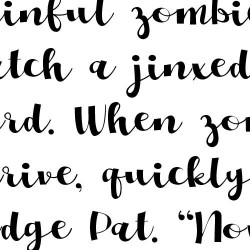 inful zombie
atch a jinxed
rd. When zom
rive, quickly
dge Pat. “Now